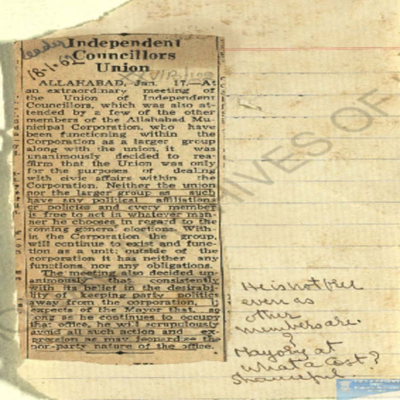 Leader
18-1-62
Independent
Councillors
Union
ALLAHABAD, Jan. 17.—At
an extraordinary meeting of
the Union of Independent
Councillors, which was also at-
tended by a few of the other
members of the Allahabad Mu-
nicipal Corporation, who have
been functioning within the
Corporation as a larger group
along with the union, it was
unanimously decided to rea-
ffirm that the Union was only
for the purposes of dealing
with civic affairs within the
Corporation. Neither the union
nor the larger group as such
have any political affiliations
or policies and every member
is free to act in whatever man-
ner he chooses in regard to the
coming general elections. With-
in the Corporation the group,
will continue to exist and func-
tion as a unit; outside of the
corporation it has neither any
functions nor any obligations.
The meeting also decided un-
animously that consistently
with its belief in the desirabi-
lity of keeping party politics
away from the corporation, it
expects of the Mayor that, so
long as he continues to occupy
that office, he will scrupulously
avoid all such action and ex-
pression as may jeopardise the
non-party nature of the office.
He is not free
even as
other
members are.
Mayor at
what a cost?
Shameful.
ARCHIVES OF